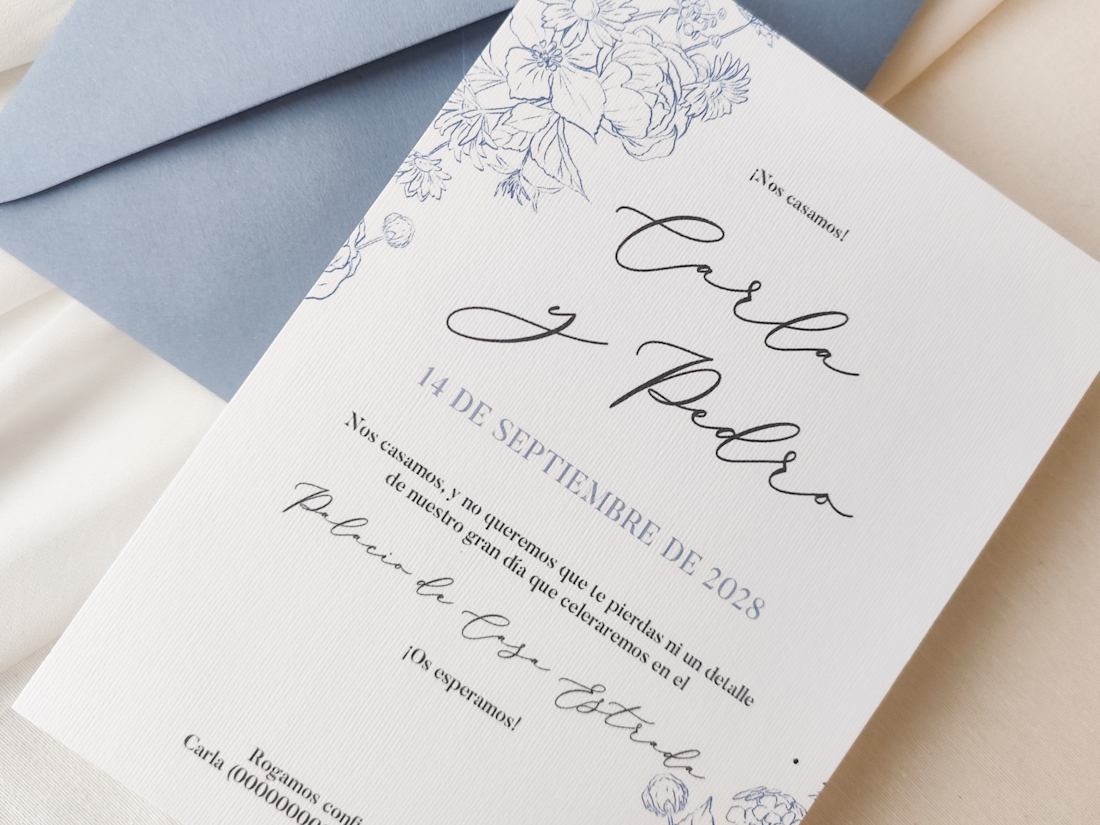 ¡Nos casamos!
Carla
y Pedro
14 DE SEPTIEMBRE DE 2028
Nos casamos, y no queremos que te pierdas ni un detalle
de nuestro gran día que celeraremos en el
Palacio de Casa Estrada
¡Os esperamos!
Rogamos confi
Carla (00000000